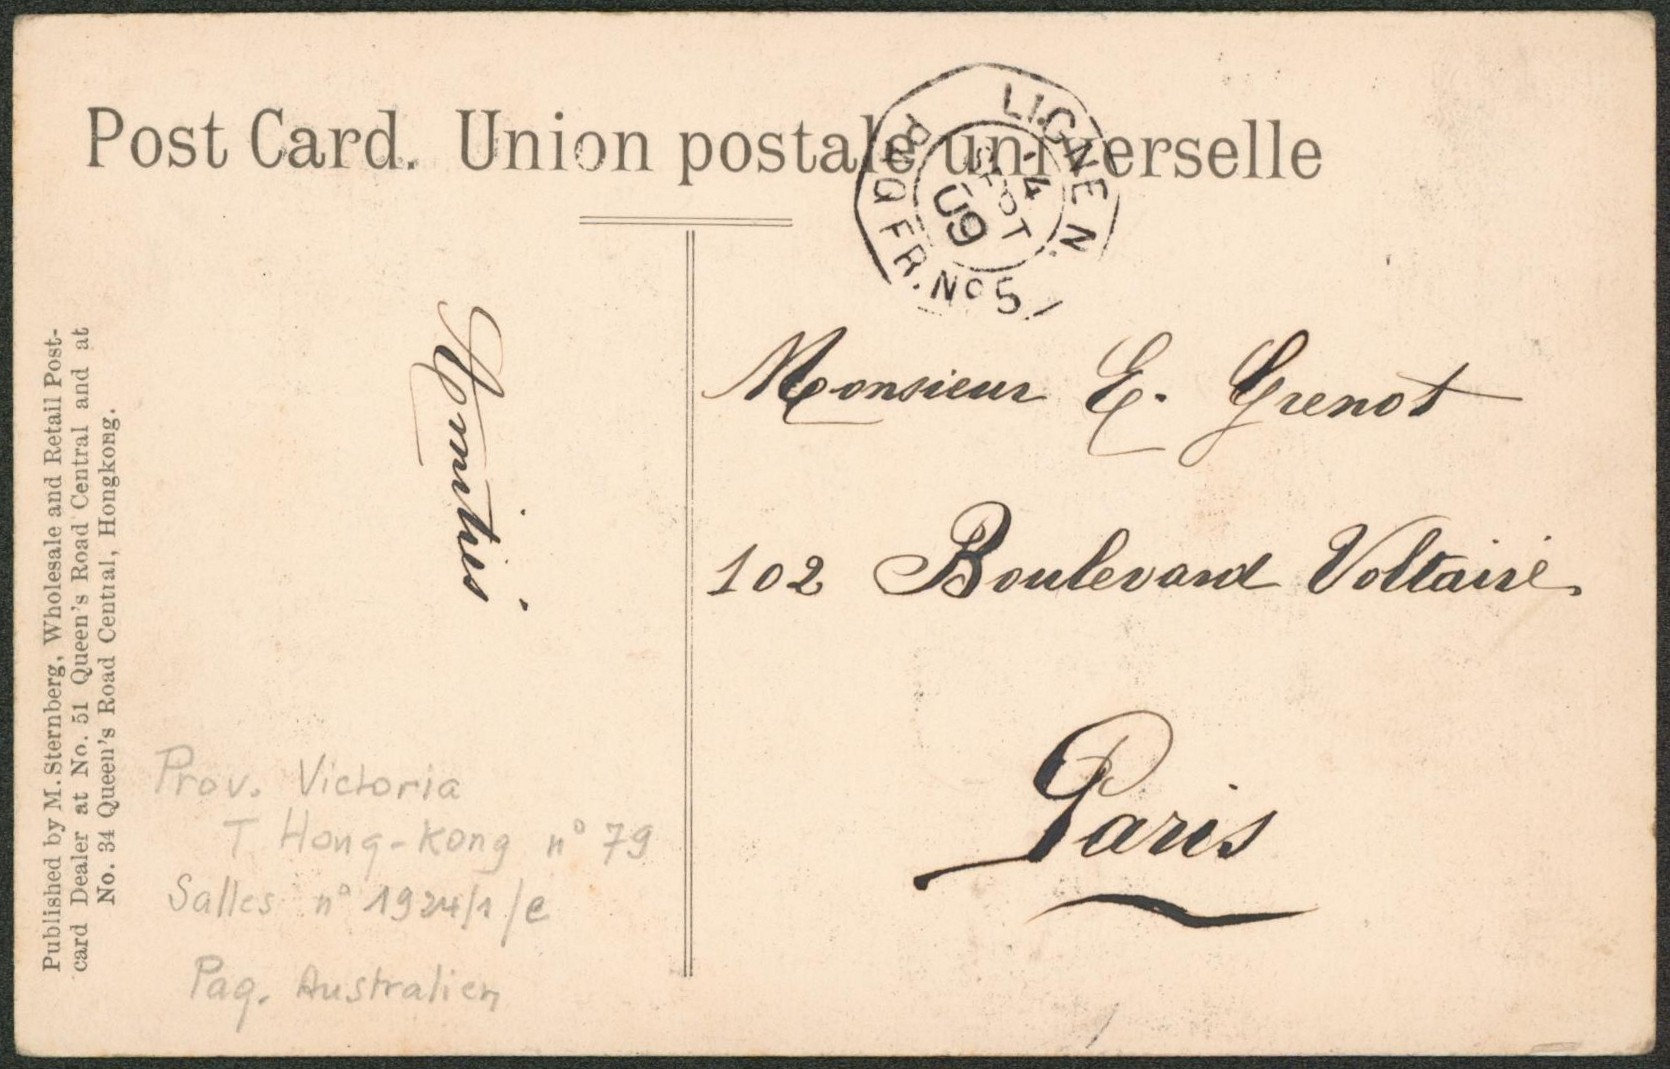 Post Card. Union postale universelle
LIGNE N
PAQ FR. No 5
14
SEPT
09
Monsieur E. Grenot
102 Boulevard Voltaire
Paris
Published by M. Sternberg, Wholesale and Retail Post-
card Dealer at No. 51 Queen's Road Central and at
No. 34 Queen's Road Central, Hongkong.
Prov. Victoria
T Hong-Kong n° 79
Salles n° 1924/1/e
Paq. Australien